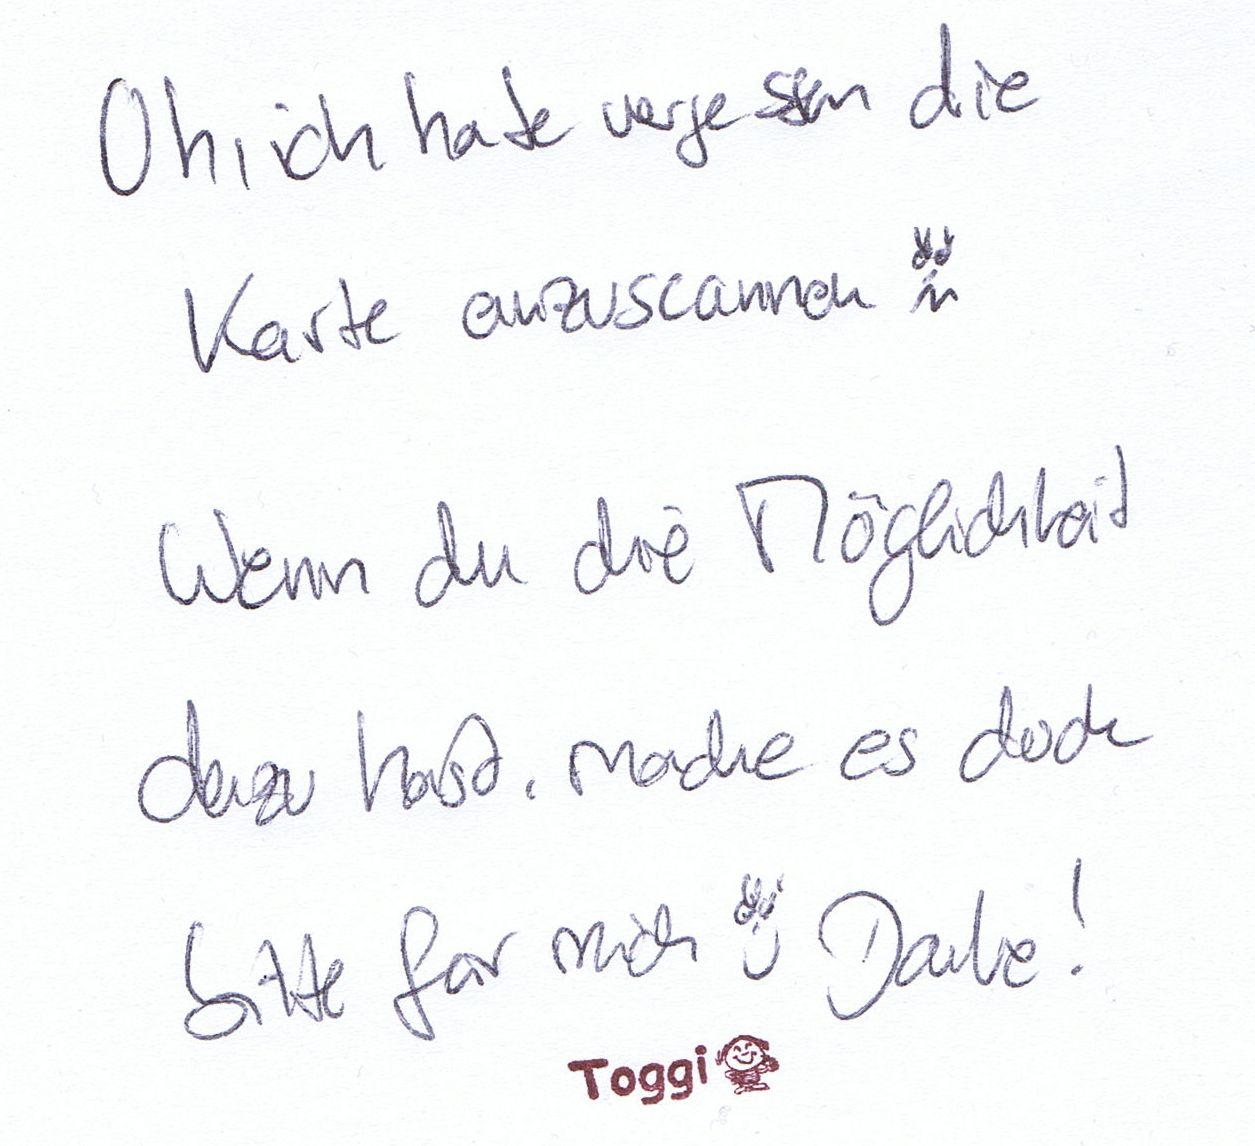 Oh, ich habe vergessen die
Karte anzuscannen
Wenn du die Möglichkeit
dazu hast, mache es doch
bitte für mich Danke!
Toggi